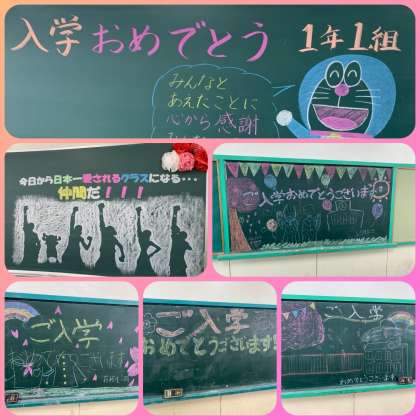 入学おめでとう 1年1組
みんなと
あえたことに
心から感謝
今日から日本一愛されるクラスになる・・・
仲間だ！！！
ご入学おめでとうございます
ご入学
おめでとうございます
ご入学
おめでとうございます!
ご入学
おめでとうございます